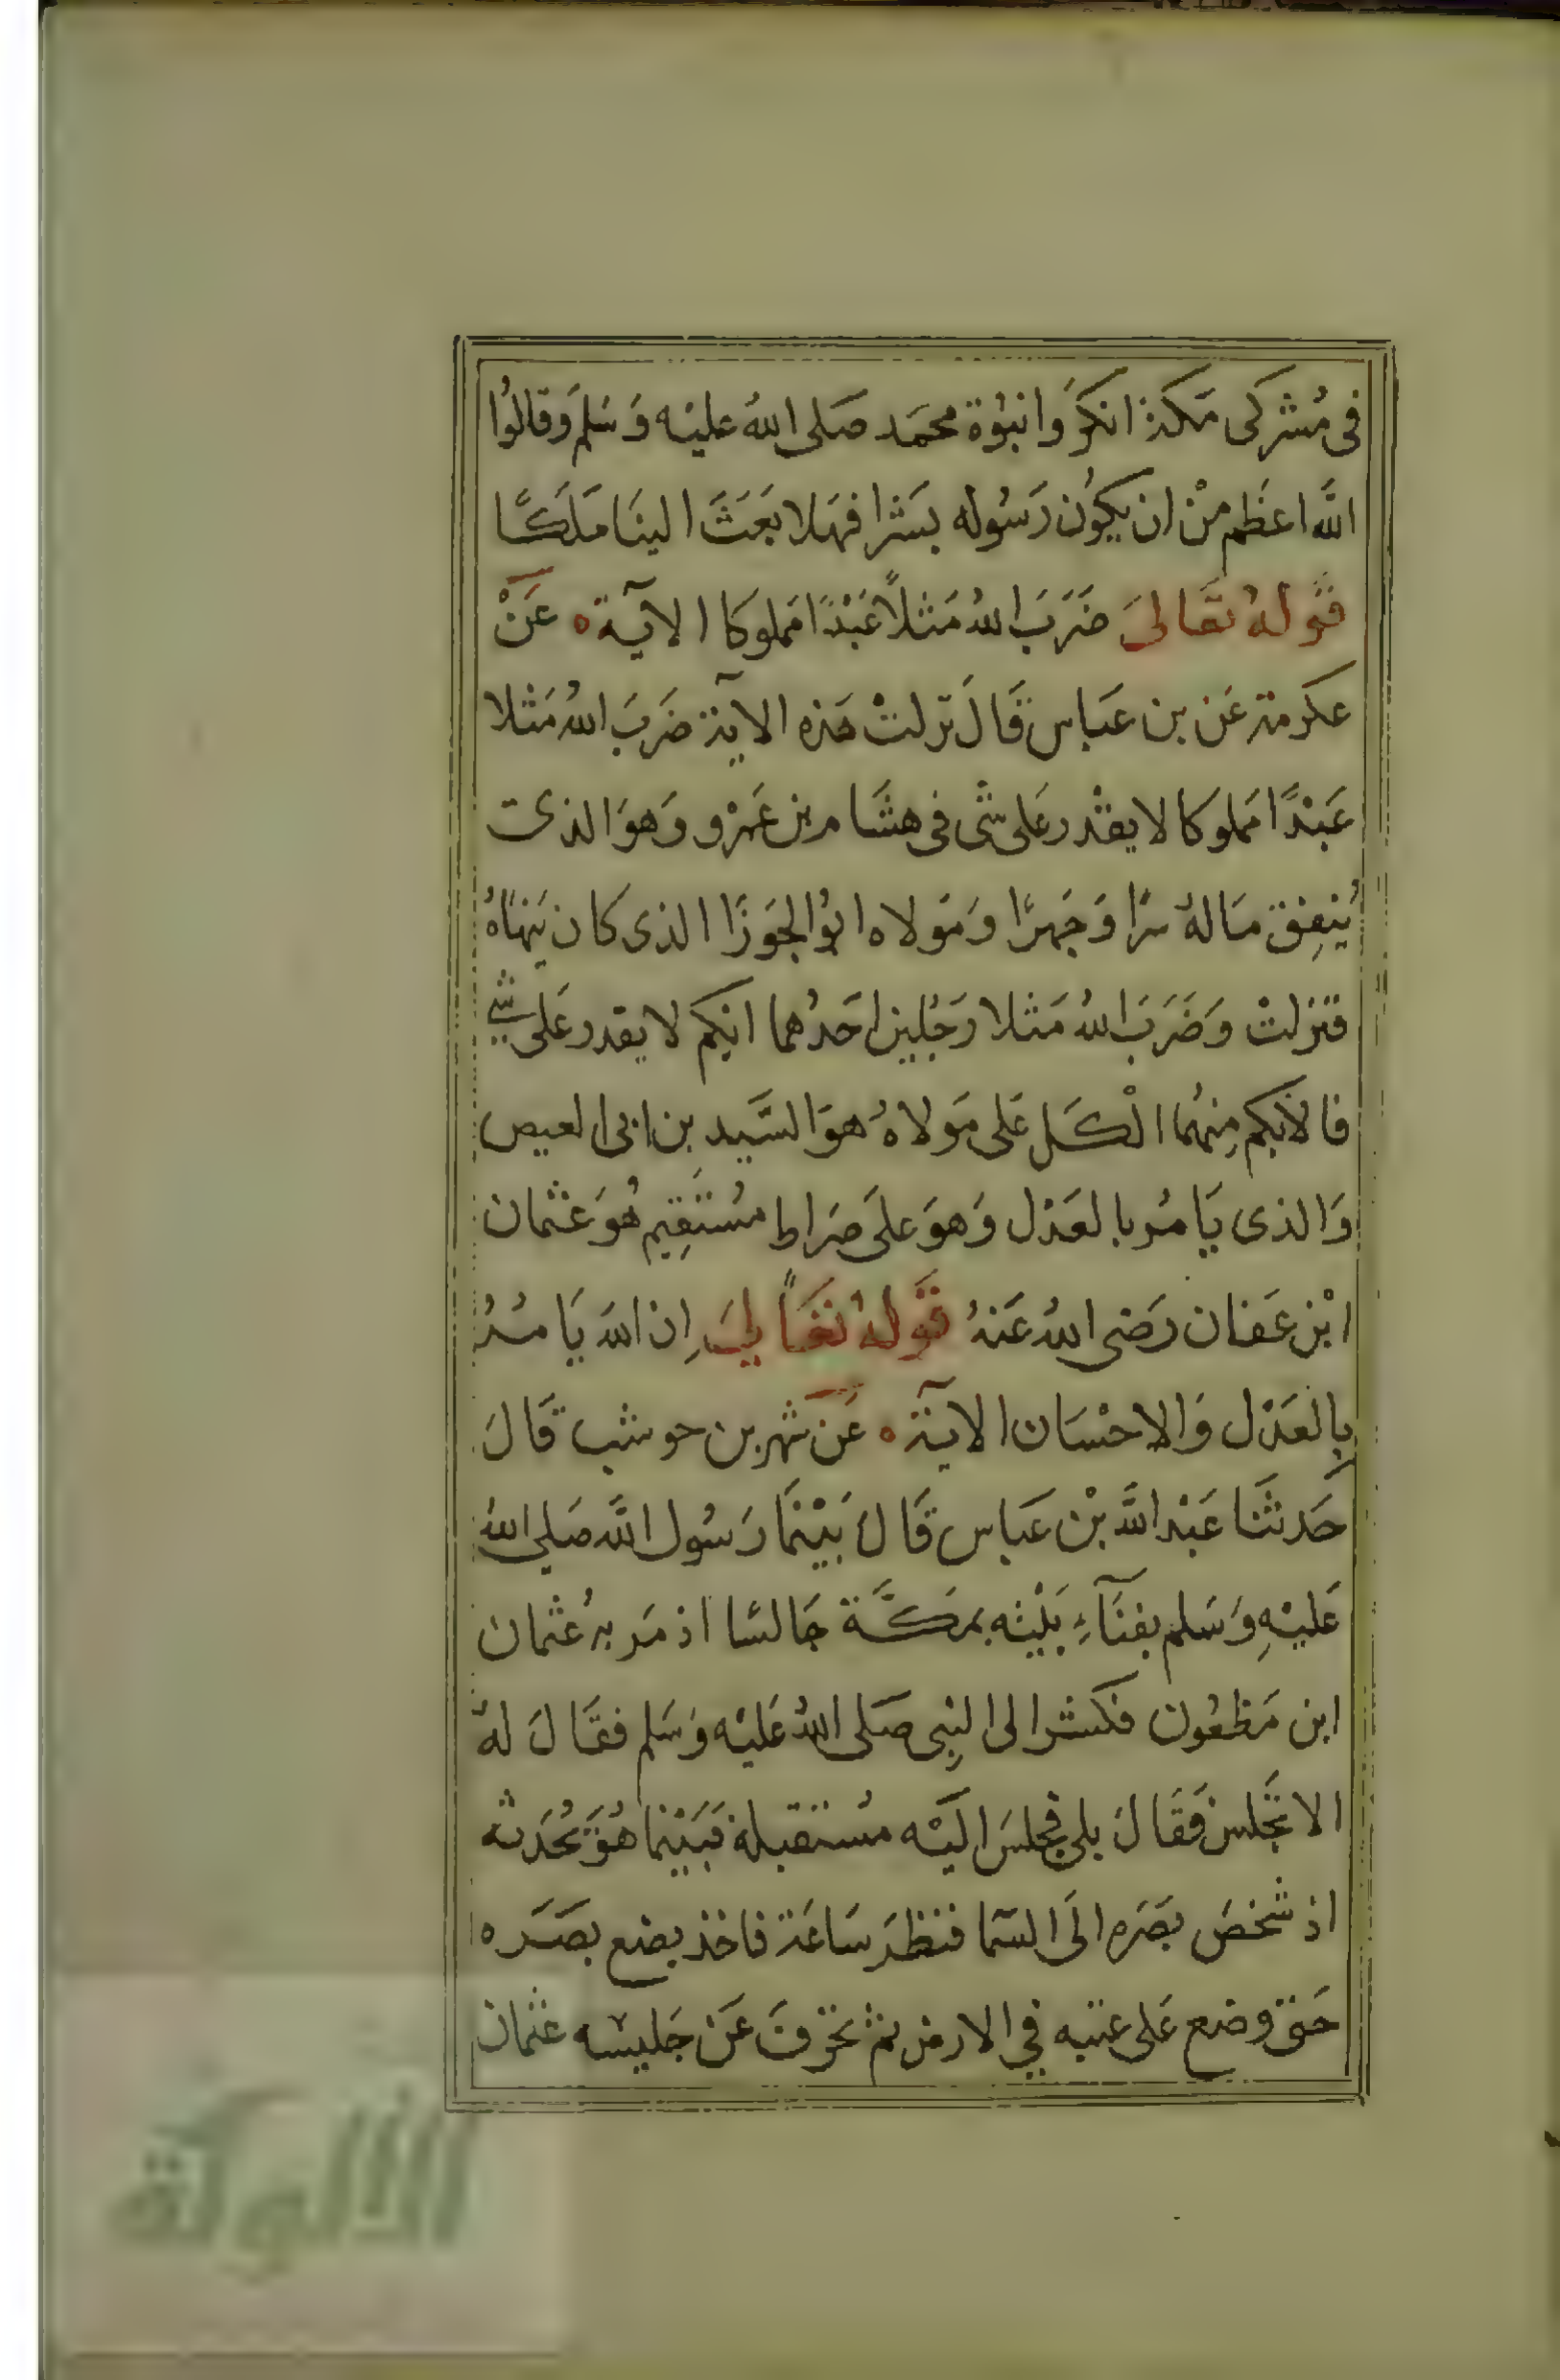 فى مُشركى مَكة انكرُوا نبوُة محمَد صَلى اللهُ عليْه وَسَلمَ وَقالوُا
اللَّه اعَظم منْ ان يكوُن رَسُوله بسَثرا فهَلا بَعَثَ الينَا مَلَكًا
قَوله تعَالىَ ضَرَبَ اللهُ مَثلاً عَبْدًا مَملوكا الآية ه عَنْ
عكرمة عَن بن عَباس قَالَ نزلتْ هَذه الآية ضَرَبَ اللهُ مَثلا
عَبْدًا مَملوَكا لا يقْدر عَلى شَى فى هشَام بن عَمْرو وَهوَ الذى
يُنفِق مَالهُ سرًا وَجَهرًا وَمَولاه ابُوا الجَوزَا الذى كان يَنهَاهُ
فنزلتْ وَضَرَبَ اللهُ مَثلا رَجُلين احَدُهما ابكم لا يقدر عَلى شى
فالابكم مِنهُما الْكَل عَلى مَولاهُ هوَ السَّيد بِن ابى العيص
وَالذى يَامُر بالعَدْل وَهوَ علىَ صَراط مسُتَقِيم هُوَ عَثمان
ابْن عَفان رَضى اللهُ عَنهُ قَوله تعَالىَ اِن اللهَ يَا مُرُ
بِالعَدْل وَالاحْسَان الآية ه عَن شَهر بن حوشب قَالَ
حَدثنَا عَبْد اللَّه بْن عَباس قَالَ بَيْنمَا رَسُول اللَّه صَلى اللهُ
عَليْهِ وَسَلم بفنَآءِ بَيْته بمَكَّة جَالسًا اذ مَر بهُ عُثمان
ابن مَظعُون فكشرا لى النِبى صَلى اللهُ عَليْه وَسَلم فقَالَ لهُ
الا تجَلس فَقَالَ بلى فجلسَ اليَه مسُتقبله فبَيْنما هُوَ يُحَدثه
اذ شَخصَ بصَره الَى السَّما فنظرَ سَاعَة فاخذ يضع بصَرَه
حَتى وضع عَلى عتبه في الارض ثم تحَرفَ عَن جَليسه عثمان
الألوكة